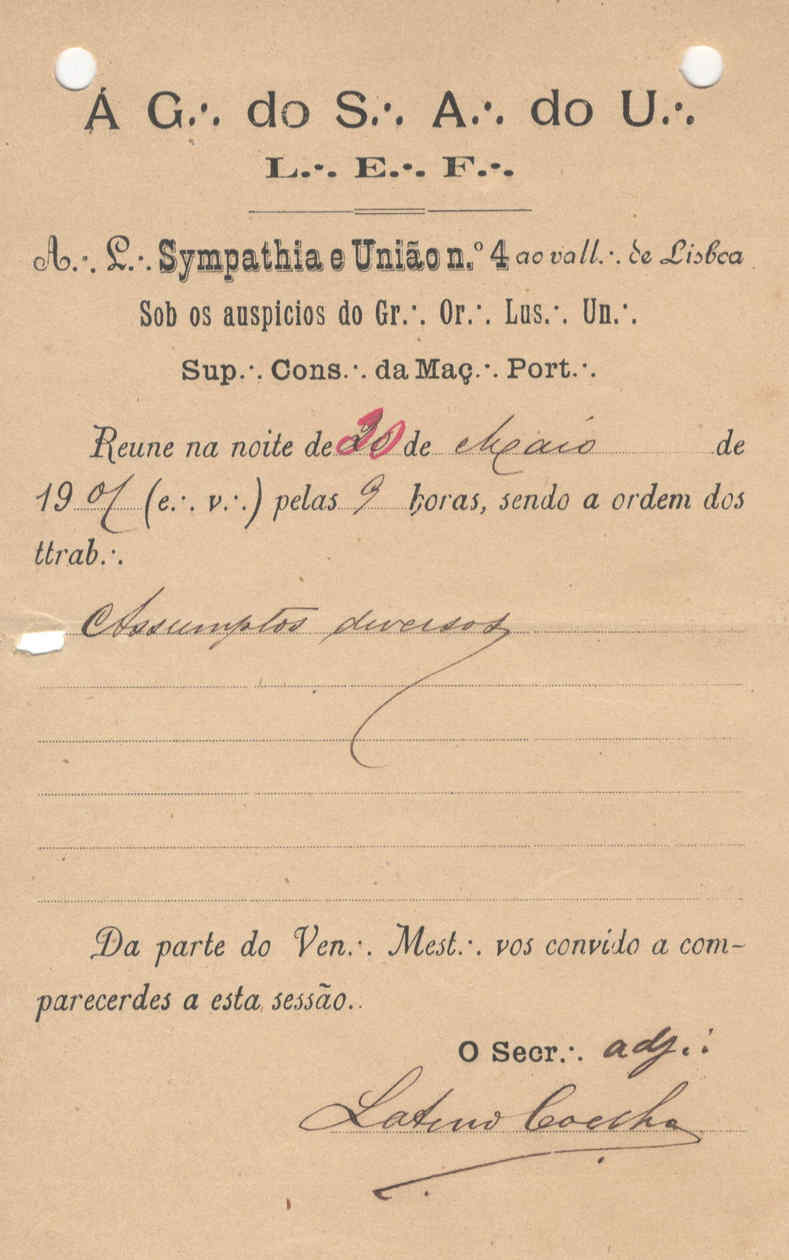 Á G.∙. do S.∙. A.∙. do U.∙.
L.∙. E.∙. F.∙.
A.∙. L.∙. Sympathia e União n.º 4 ao vall.∙. de Lisboa
Sob os auspicios do Gr.∙. Or.∙. Lus.∙. Un.∙.
Sup.∙. Cons.∙. da Maç.∙. Port.∙.
Reune na noite de 30 de Maio de
1901 (e.∙. v.∙.) pelas 9 horas, sendo a ordem dos
ttrab.∙.
Assumptos diversos
Da parte do Ven.∙. Mest.∙. vos convido a com-
parecerdes a esta sessão.
O Secr.∙. adj.∙.
Latino Coelho